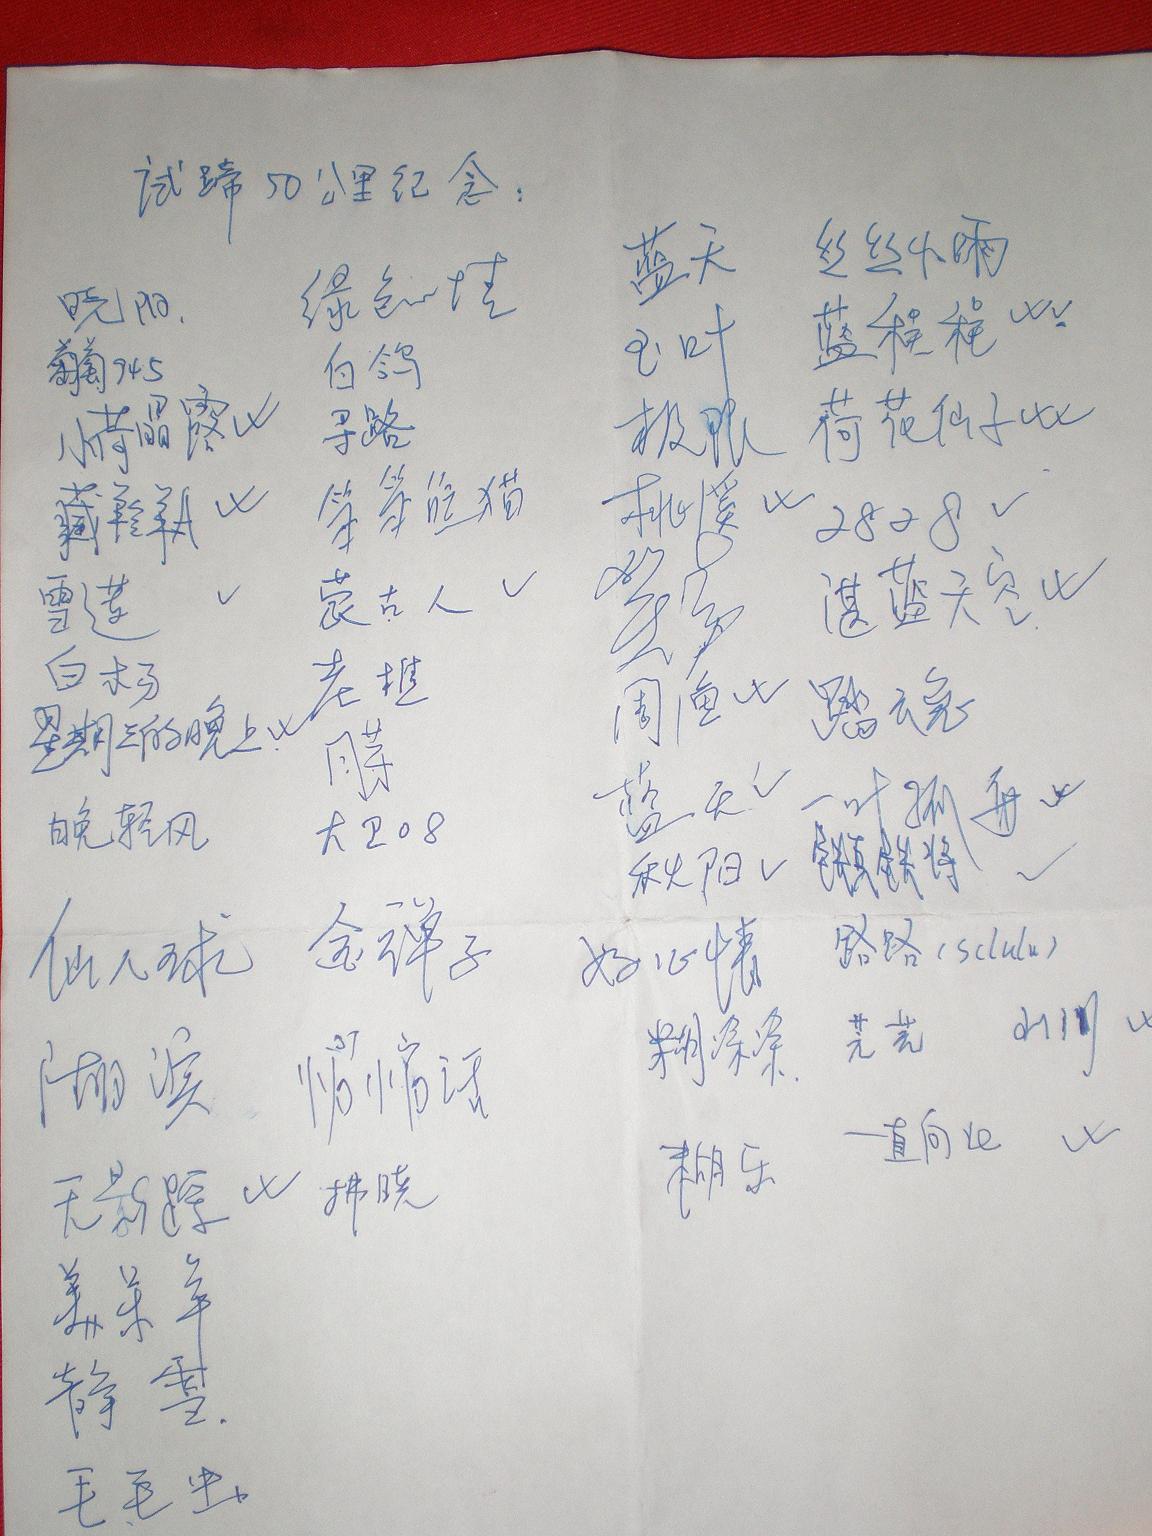 试蹄50公里纪念：
晓阳.
葡萄945
小荷晶露
藏羚羊
雪莲
白杨
星期三的晚上
晚轻风
仙人球
湖滨
无影踪
美羊羊
静雪.
毛毛虫
绿色心情
白鸽
寻路
笨笨的猫
蒙古人
老樵
月芽
大卫08
金弹子
悄悄话
拂晓
蓝天
玉叶
极限
桃溪
周渔
蓝天
秋阳
好心情
糊涂涂.
糊乐
丝丝小雨
蓝程程
荷花仙子
2828
湛蓝天空.
踏云兔
一叶孤舟
路路(sclulu)
芫芫 山川
一直向北